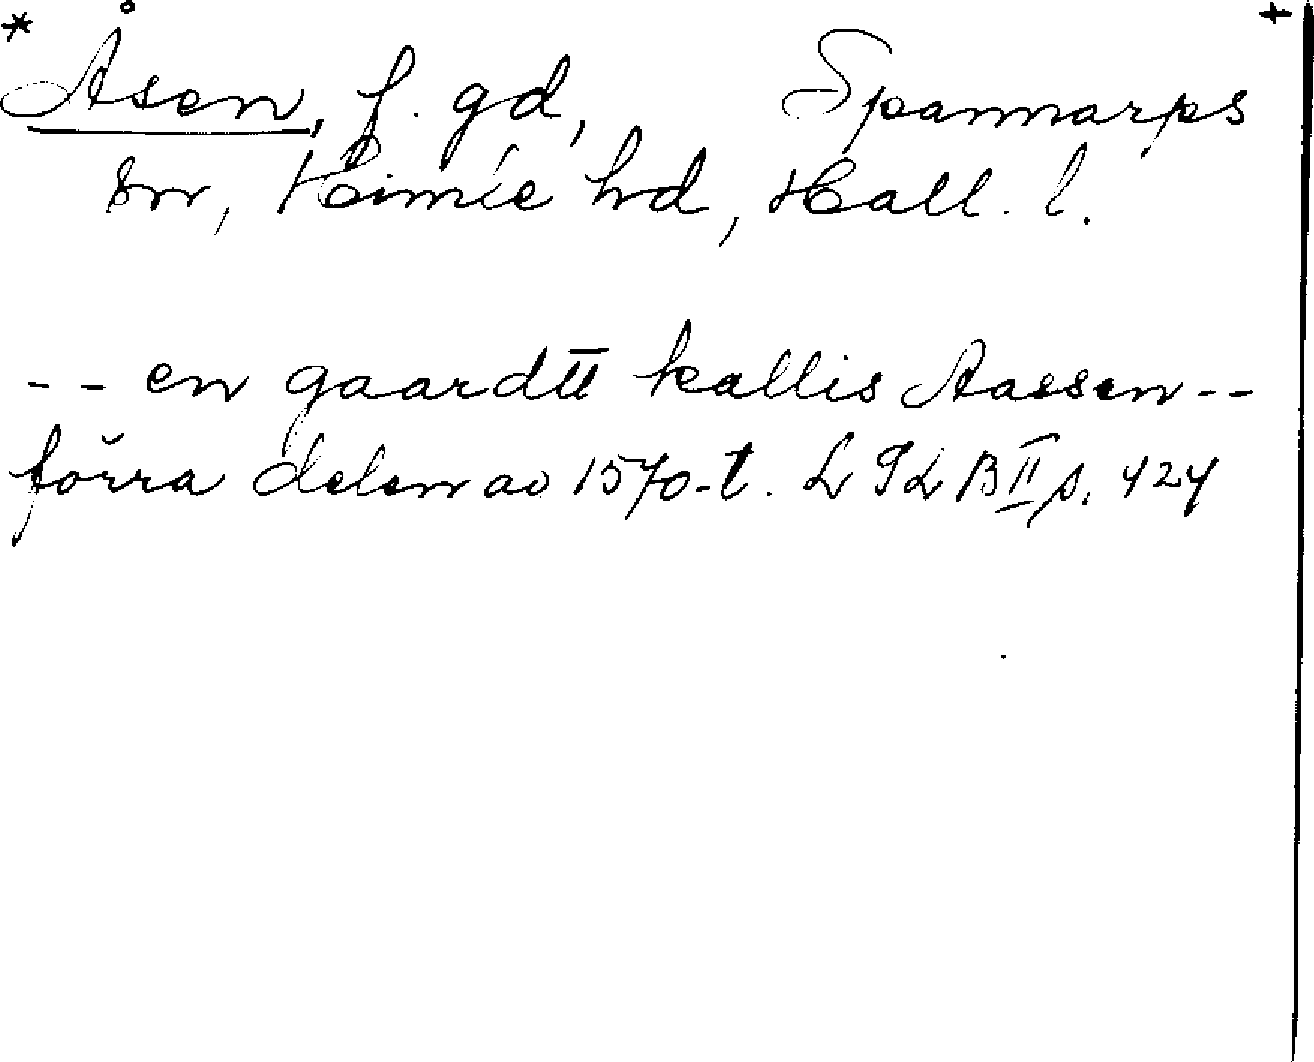 * Åsen, f. gd, Spannarps +
sn, Himle hd, Hall. l.
-- en gaard kallis Aassen --
förra delen av 1570-t. B II s. 424